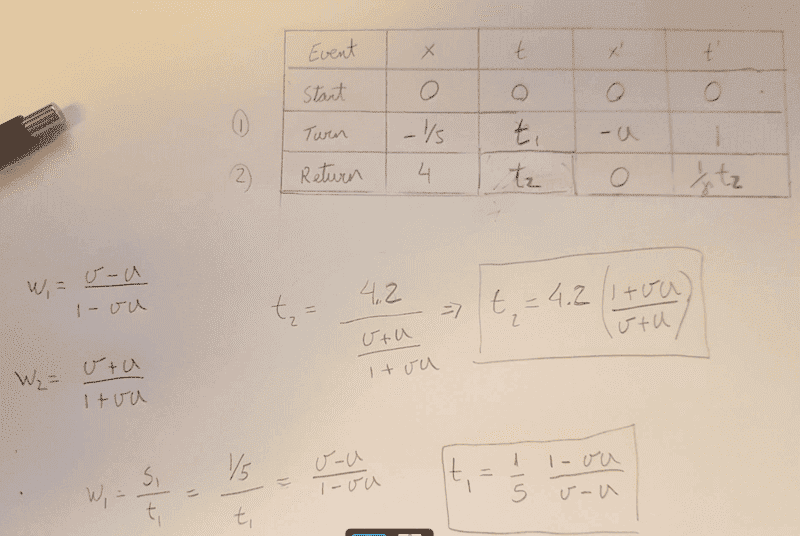 Event x t x' t'
Start 0 0 0 0
① Turn -1/5 t₁ -u 1
② Return 4 t₂ 0 1/γ t₂
w₁ = (v-u)/(1-vu)
t₂ = 4.2/((v+u)/(1+vu)) => t₂ = 4.2 ((1+vu)/(v+u))
w₂ = (v+u)/(1+vu)
w₁ = S₁/t₁ = (1/5)/t₁ = (v-u)/(1-vu)
t₁ = 1/5 (1-vu)/(v-u)